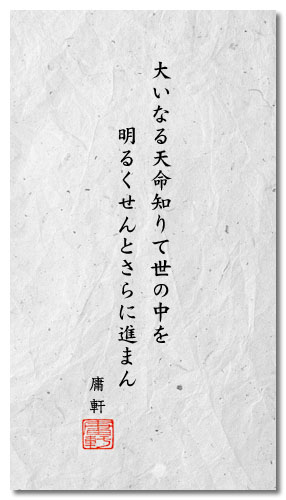 大いなる天命知りて世の中を
明るくせんとさらに進まん
庸軒
庸軒